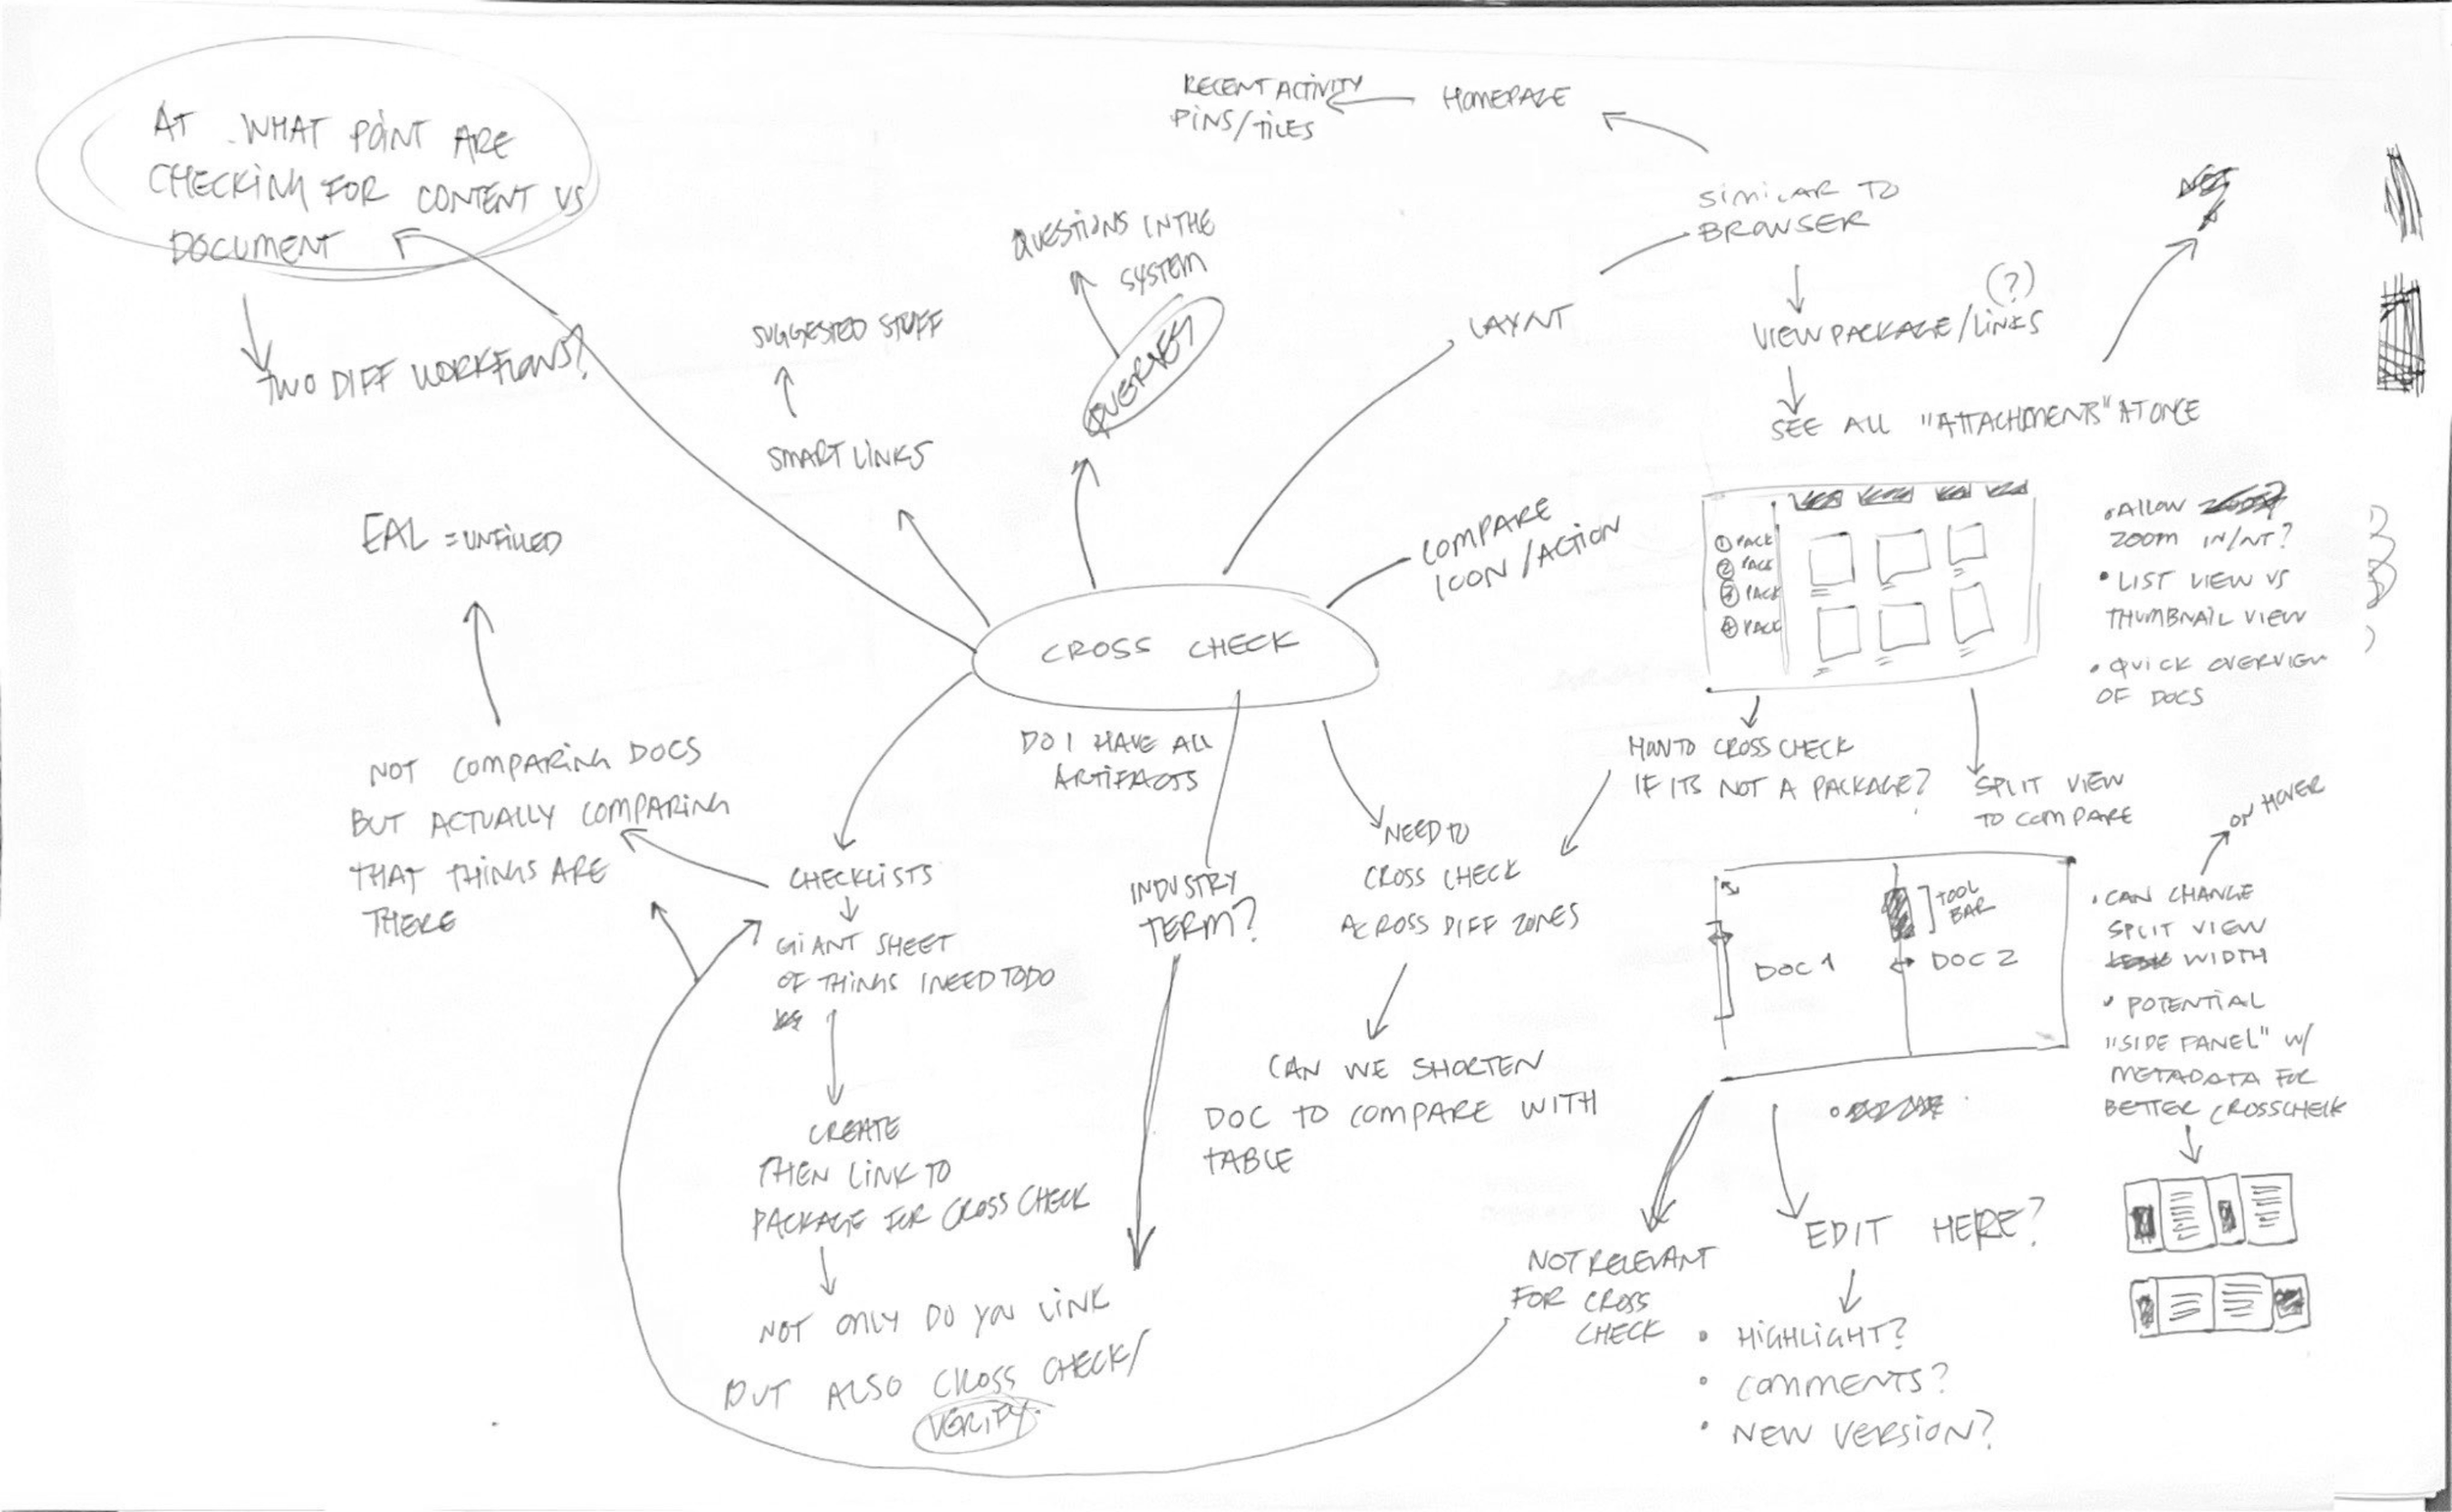 AT WHAT POINT ARE
CHECKING FOR CONTENT VS
DOCUMENT
TWO DIFF WORKFLOWS?
EAL = UNFILLED
NOT COMPARING DOCS
BUT ACTUALLY COMPARING
THAT THINGS ARE
THERE
SUGGESTED STUFF
SMART LINKS
QUESTIONS IN THE
SYSTEM
RECENT ACTIVITY
PINS/TILES
HOMEPAGE
SIMILAR TO
BROWSER
LAYOUT
(?)
VIEW PACKAGE/LINKS
SEE ALL "ATTACHMENTS" AT ONCE
COMPARE
ICON/ACTION
CROSS CHECK
DO I HAVE ALL
ARTIFACTS
CHECKLISTS
GIANT SHEET
OF THINGS I NEED TO DO
CREATE
THEN LINK TO
PACKAGE FOR CROSS CHECK
NOT ONLY DO YOU LINK
BUT ALSO CROSS CHECK/
VERIFY
INDUSTRY
TERM?
NEED TO
CROSS CHECK
ACROSS DIFF ZONES
CAN WE SHORTEN
DOC TO COMPARE WITH
TABLE
1 PACK
2 PACK
3 PACK
4 PACK
• ALLOW
ZOOM IN/OUT?
• LIST VIEW VS
THUMBNAIL VIEW
• QUICK OVERVIEW
OF DOCS
HOW TO CROSS CHECK
IF ITS NOT A PACKAGE?
SPLIT VIEW
TO COMPARE
ON HOVER
TOOL
BAR
DOC 1
DOC 2
• CAN CHANGE
SPLIT VIEW
WIDTH
• POTENTIAL
"SIDE PANEL" W/
METADATA FOR
BETTER CROSSCHECK
NOT RELEVANT
FOR CROSS
CHECK
EDIT HERE?
• HIGHLIGHT?
• COMMENTS?
• NEW VERSION?